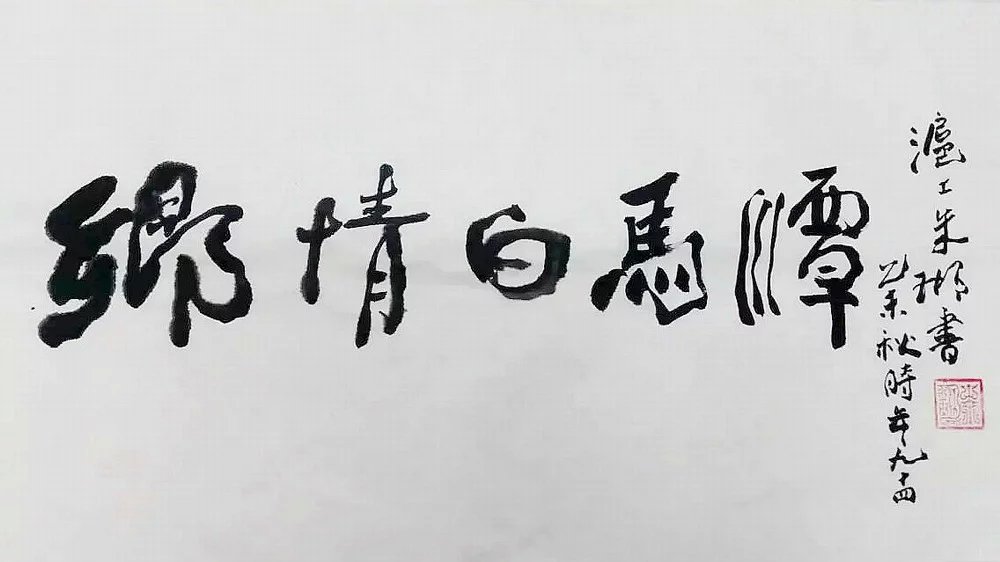 鄉情白馬潭
滬上朱書
乙未秋時年九十四